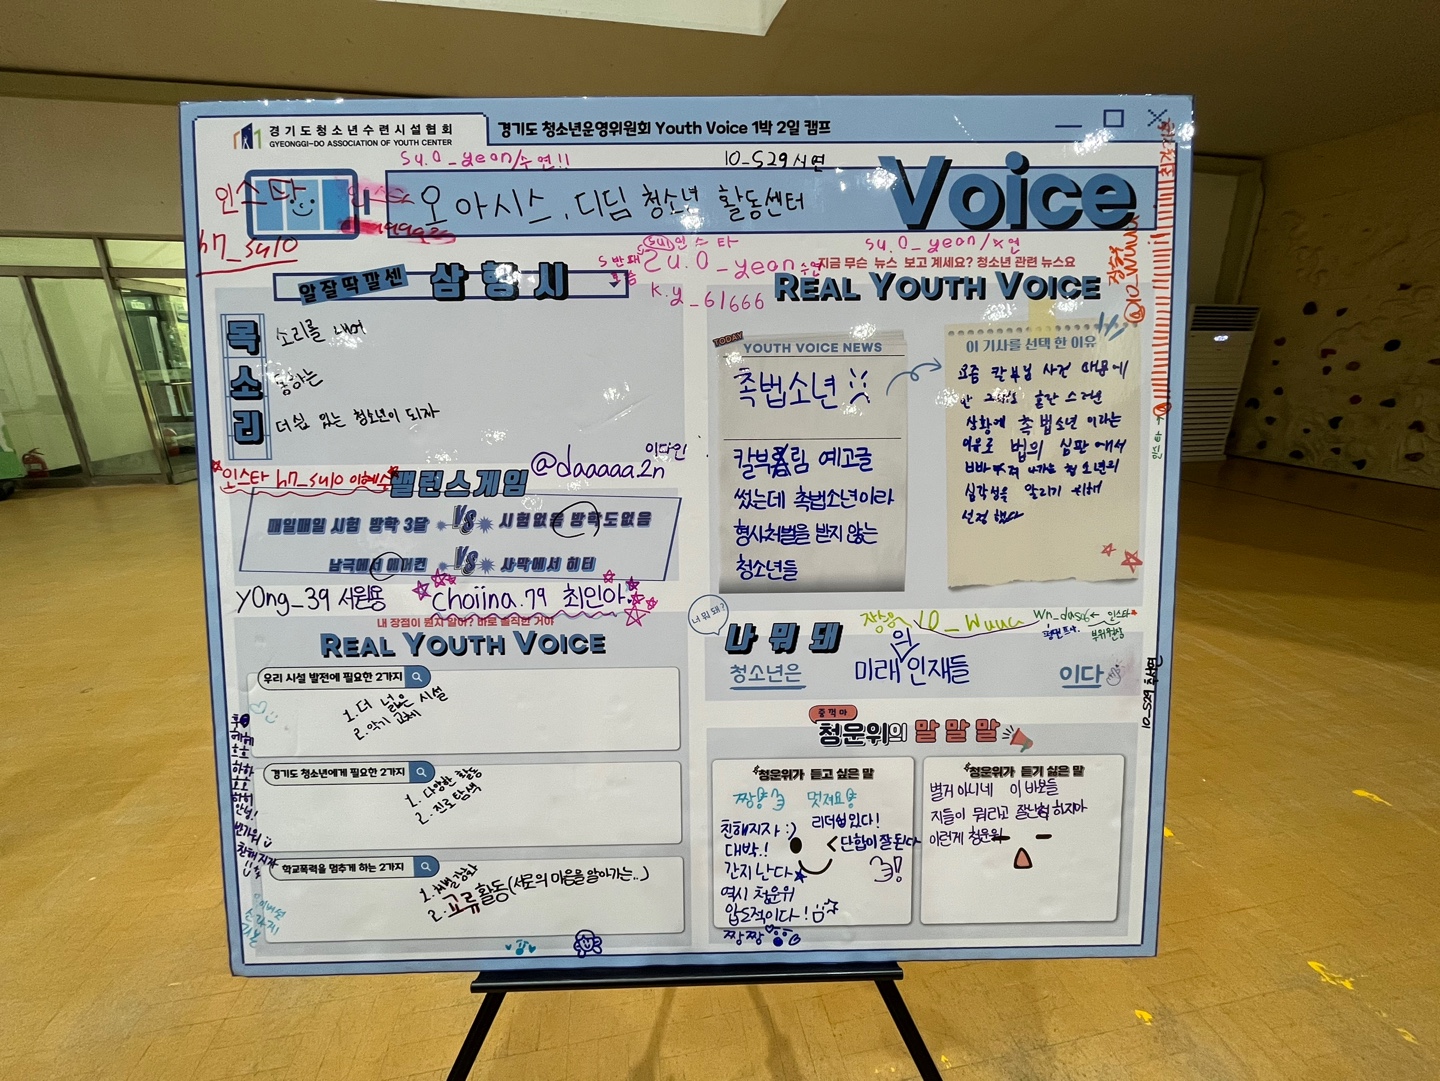 경기도청소년수련시설협회
GYEONGGI-DO ASSOCIATION OF YOUTH CENTER
경기도 청소년운영위원회 Youth Voice 1박 2일 캠프
su.0_yeon/수연!!
10_S29 서연
Voice
인스타
h7_su10
오아시스, 디딤 청소년 활동센터
인스타
su.0_yeon 수연
k.y_61666
su.0_yeon/수연
알잘딱깔센 삼행시
목 소리를 내어
소
리 더 쉽 있는 청소년이 되자
인스타 h7_su10 이혜수
@daaaaa.2n
이다인
밸런스게임
매일매일 시험 방학 3달 VS 시험없음 방학도없음
남극에서 에어컨 VS 사막에서 히터
y0ng_39 서원용
choiina.79 최인아
내 장점이 뭔지 알아? 바로 솔직한 거야
REAL YOUTH VOICE
우리 시설 발전에 필요한 2가지
1. 더 넓은 시설
2. 악기 교체
경기도 청소년에게 필요한 2가지
1. 다양한 활동
2. 진로 탐색
학교폭력을 멈추게 하는 2가지
1. 처벌 강화
2. 교류 활동(서로의 마음을 알아가는..)
헤헤
호호
하하
안녕!
반가워
친해지자
지금 무슨 뉴스 보고 계세요? 청소년 관련 뉴스요
REAL YOUTH VOICE
TODAY
YOUTH VOICE NEWS
촉법소년
칼부림 예고글
썼는데 촉법소년이라
형사처벌을 받지 않는
청소년들
이 기사를 선택 한 이유
요즘 칼부림 사건 때문에
상황에 촉법소년 이라는
이유로 법의 심판에서
청소년의
심각성을 알리기 위해
선정 했다
@10_wuuu
인스타
너 뭐 돼?
나 뭐 돼
장용 10_wuuu
인스타
부위원장
청소년은 미래의 인재들 이다
10_S29
중꺽마
청운위의 말 말 말
청운위가 듣고 싶은 말
짱 멋져요
친해지자 :) 리더쉽있다!
대박.! 단합이 잘 된다
간지 난다
역시 청운위
압도적이다!
짱짱
청운위가 듣기 싫은 말
별거 아니네 이 바보들
지들이 뭐라고 잘난척 하지마
이런게 청운위